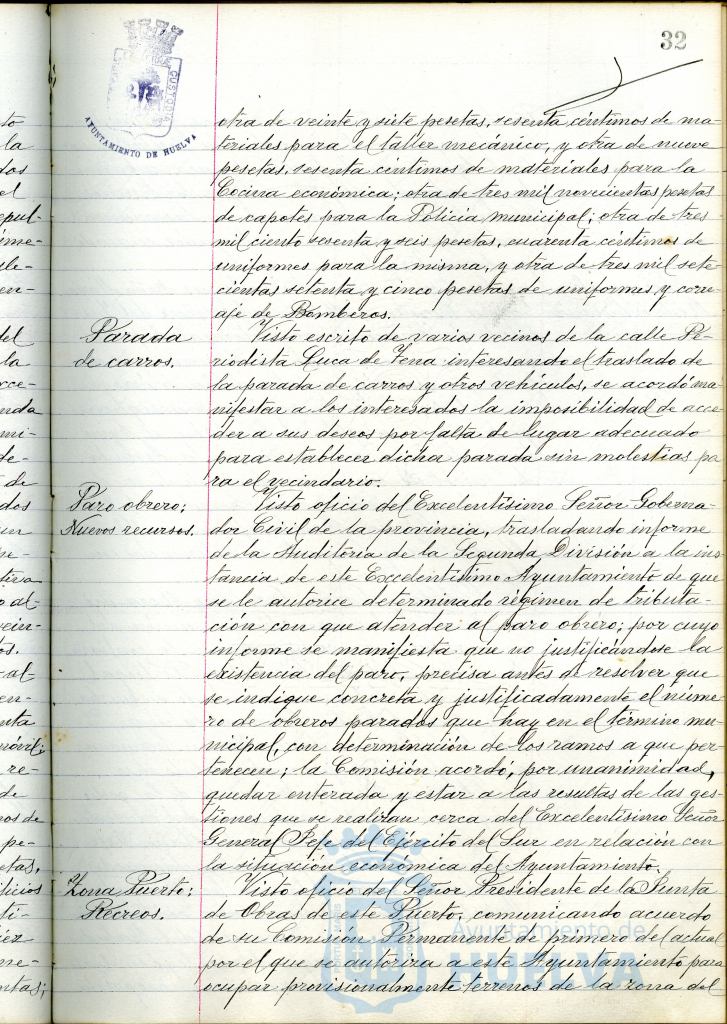 32
AYUNTAMIENTO DE HUELVA
otra de veinte y siete pesetas, sesenta céntimos de ma-
teriales para el taller mecánico, y otra de nueve
pesetas, sesenta céntimos de materiales para la
Cocina económica; otra de tres mil novecientas pesetas
de capotes para la Policía municipal; otra de tres
mil ciento sesenta y seis pesetas, cuarenta céntimos de
uniformes para la misma, y otra de tres mil sete-
cientas setenta y cinco pesetas de uniformes y corre-
aje de Bomberos.
Parada
de carros.
Visto escrito de varios vecinos de la calle Pe-
riodista Luca de Tena interesando el traslado de
la parada de carros y otros vehículos, se acordó ma-
nifestar a los interesados la imposibilidad de acce-
der a sus deseos por falta de lugar adecuado
para establecer dicha parada sin molestias pa
ra el vecindario.
Paro obrero;
Nuevos recursos.
Visto oficio del Excelentísimo Señor Goberna-
dor Civil de la provincia, trasladando informe
de la Auditoría de la Segunda División a la ins-
tancia de este Excelentísimo Ayuntamiento de que
se le autorice determinado régimen de tributa-
ción con que atender al paro obrero; por cuyo
informe se manifiesta que no justificándose la
existencia del paro, precisa antes de resolver que
se indique concreta y justificadamente el núme-
ro de obreros parados que hay en el término mu-
nicipal, con determinación de los ramos a que per-
tenecen; la Comisión acordó, por unanimidad,
quedar enterada y estar a las resultas de las ges-
tiones que se realizan cerca del Excelentísimo Señor
General Jefe del Ejército del Sur en relación con
la situación económica del Ayuntamiento.
Zona Puerto:
Recreos.
Visto oficio del Señor Presidente de la Junta
de Obras de este Puerto, comunicando acuerdo
de su Comisión Permanente de primero del actual
por el que se autoriza a este Ayuntamiento para
ocupar provisionalmente terrenos de la zona del
Ayuntamiento de
HUELVA